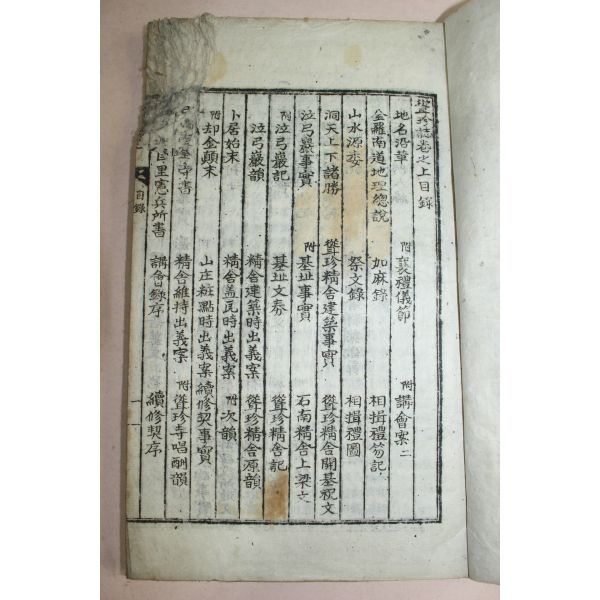 聳珍誌卷之上目錄
地名沿革 附襄禮儀節 附講會案二
全羅南道地理總說 加麻錄 相揖禮笏記
山水源委 祭文錄 相揖禮圖
洞天上下諸勝 聳珍精舍建築事實 聳珍精舍開基祝文
泣弓巖事實 附基址事實 石南精舍上梁文
附泣弓巖記 基址文券 聳珍精舍記
泣弓巖韻 精舍建築時出義案 聳珍精舍原韻
卜居始末 精舍盖瓦時出義案 附次韻
附却金顛末 山庄粧點時出義案 續修契事實
書 精舍維持出義案 附聳珍寺唱酬韻
里憲兵所書 講會錄序 續修契序
目錄